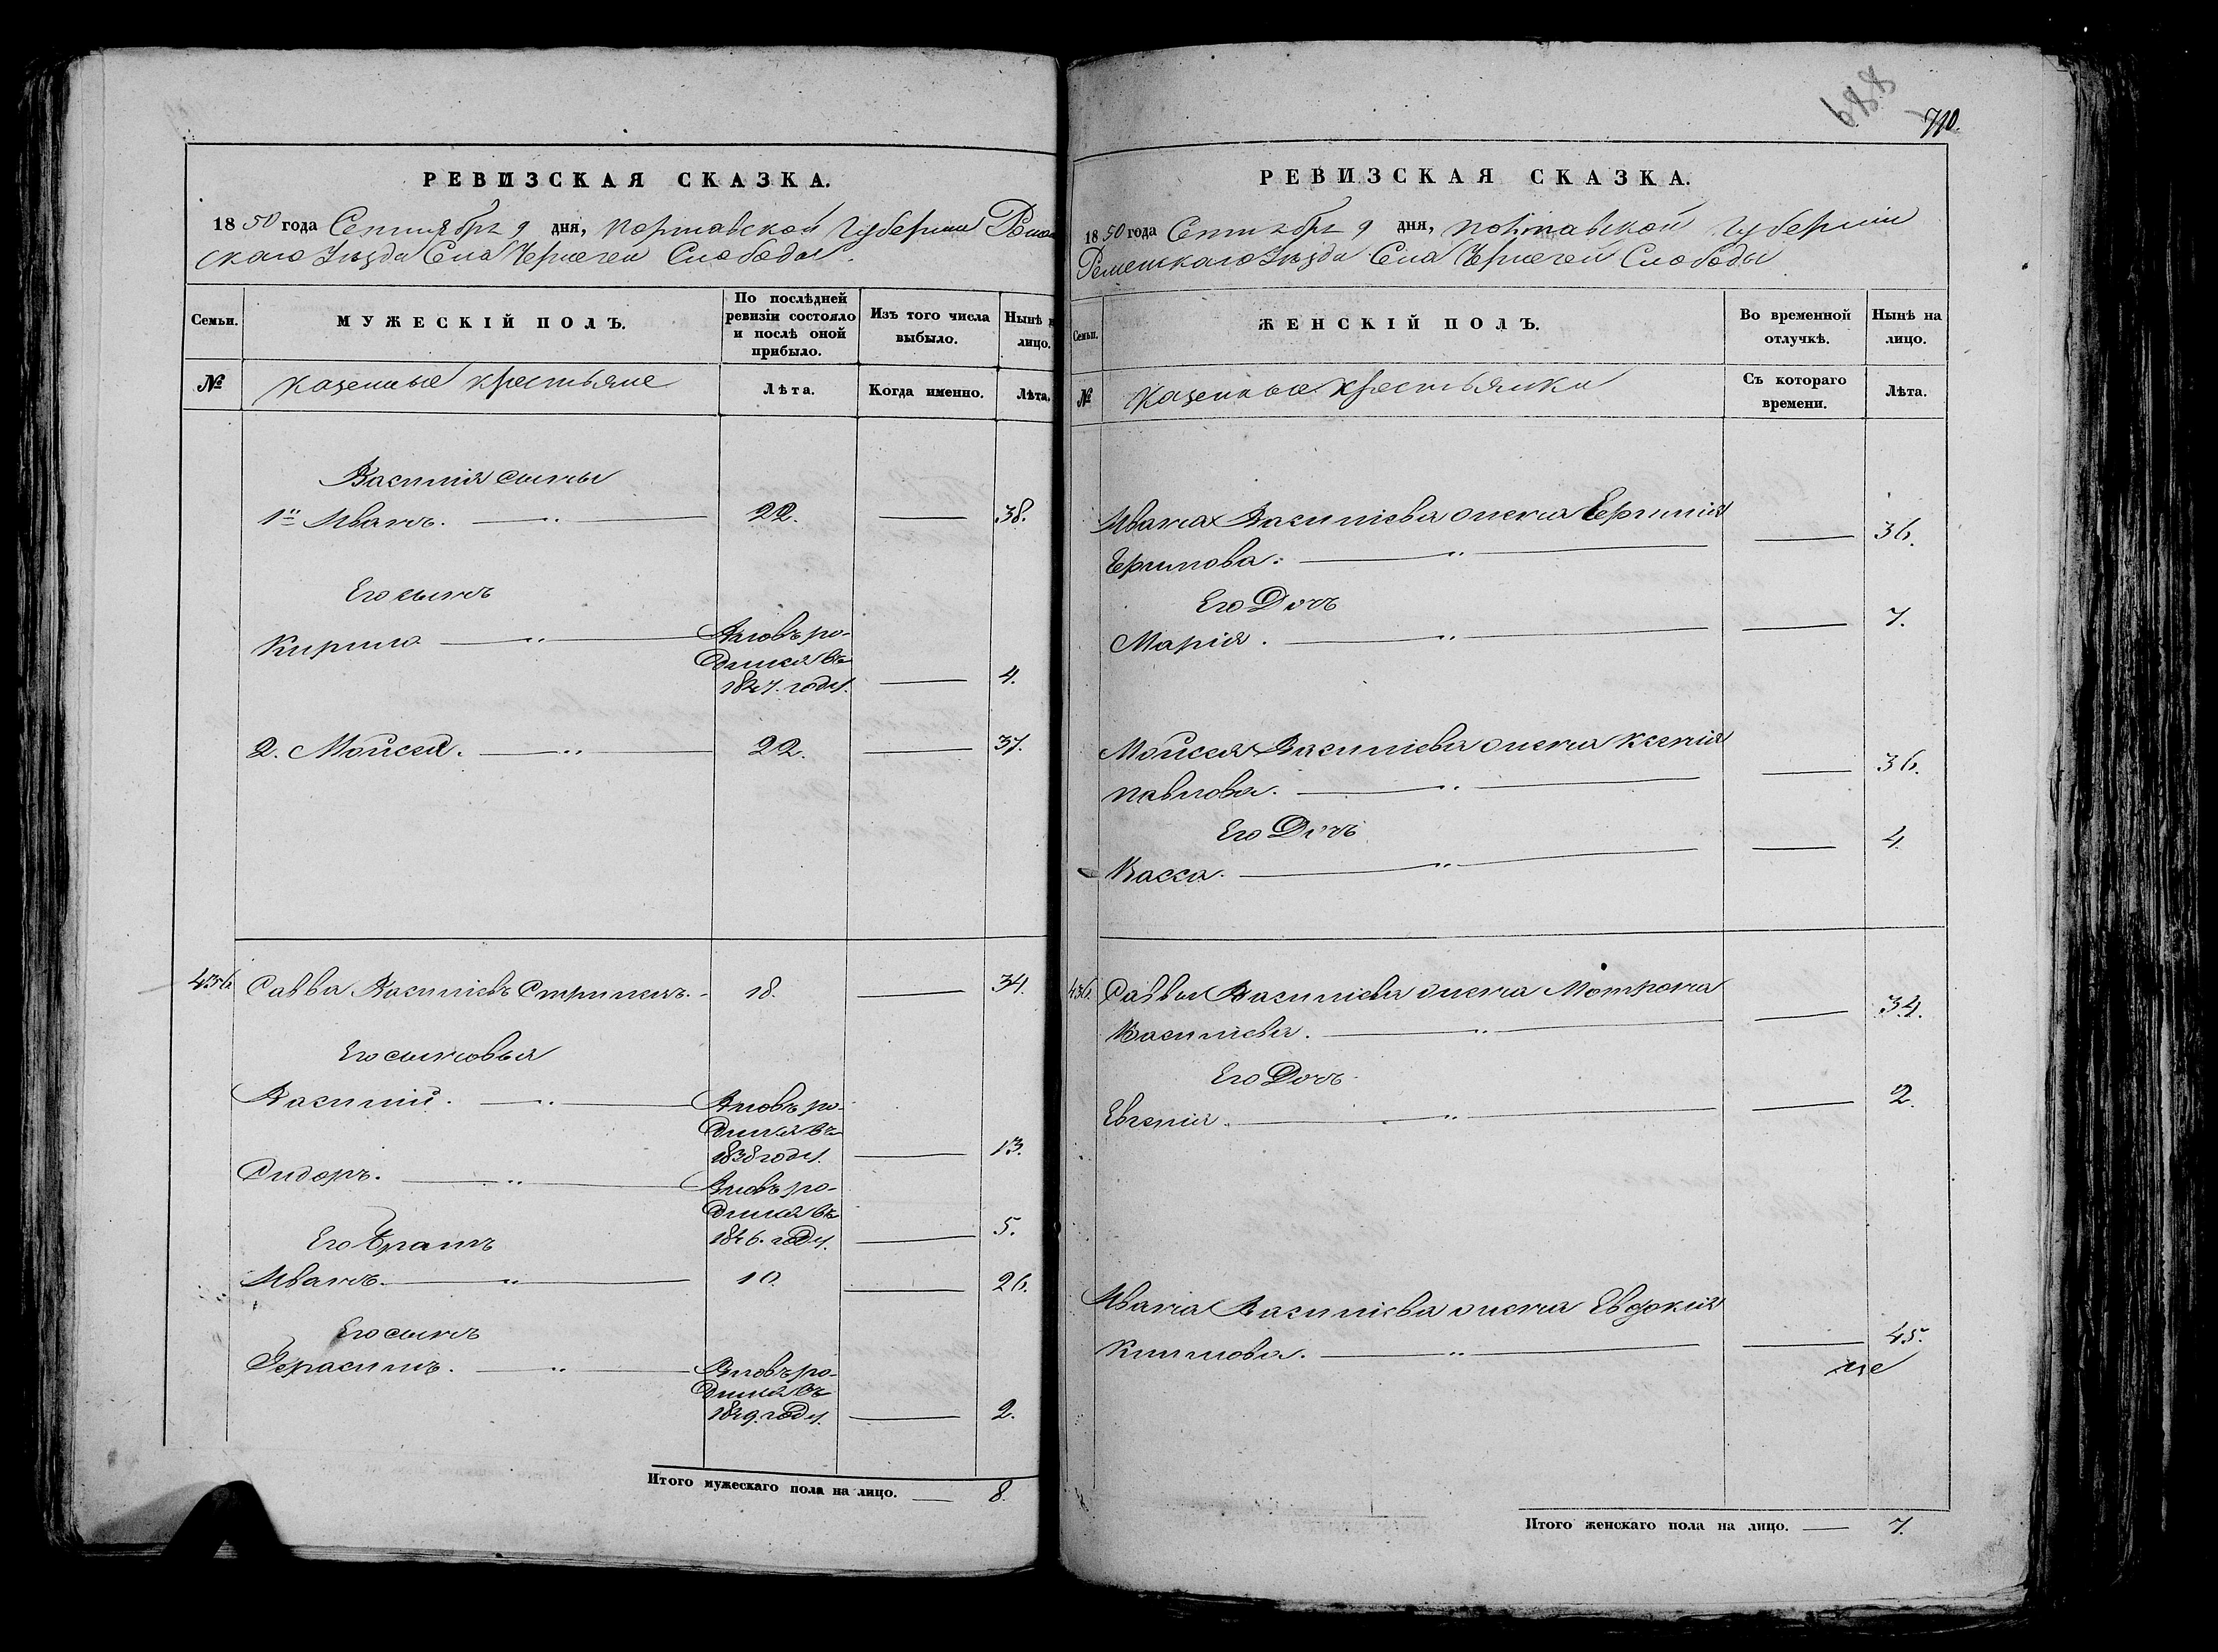 РЕВИЗСКАЯ СКАЗКА.
1850 года Сентября 9 дня, Полтавской Губернии Ромен
скаго Уезда Села Чернечей Слободы.
Семьи.
МУЖЕСКІЙ ПОЛЪ.
По послѣдней ревизіи состояло и послѣ оной прибыло.
Изъ того числа выбыло.
Нынѣ на лицо.
№
казенные крестьяне
Лѣта.
Когда именно.
Лѣта.
Василія сыны
1й Иванъ. 22. 38.
Его сынъ
Кирило Вновь ро-
дился въ
1847. году. 4.
2. Мойсей. 22. 37.
436 Савва Василіевъ 18. 34.
Его сыновья
Василий. Вновь ро-
дился въ
1838 году. 13.
Сидоръ. Вновь ро-
дился въ
1846. году. 5.
Его братъ
Иванъ. 10. 26.
Его сынъ
Герасимъ. Вновь ро-
дился въ
1849. году. 2.
Итого мужескаго пола на лицо. 8.
688
710.
РЕВИЗСКАЯ СКАЗКА.
1850 года Сентября 9 дня, Полтавской Губерніи
Роменскаго Уезда Села Чернечей Слободы
Семьи.
ЖЕНСКІЙ ПОЛЪ.
Во временной отлучкѣ.
Нынѣ на лицо.
№
Казенные крестьянки
Съ котораго времени.
Лѣта.
Ивана Василіева жена
36.
Его Дочь
Марія. 7.
Мойсея Василіева жена Ксенія
Павлова. 36.
Его Дочь
Васса. 4.
436. Саввы Василіева жена Мотрона
Василіева. 34.
Его Дочь
Евгенія. 2.
Ивана Василіева жена Евдокия
Климова. 45.
Итого женскаго пола на лицо. 7.